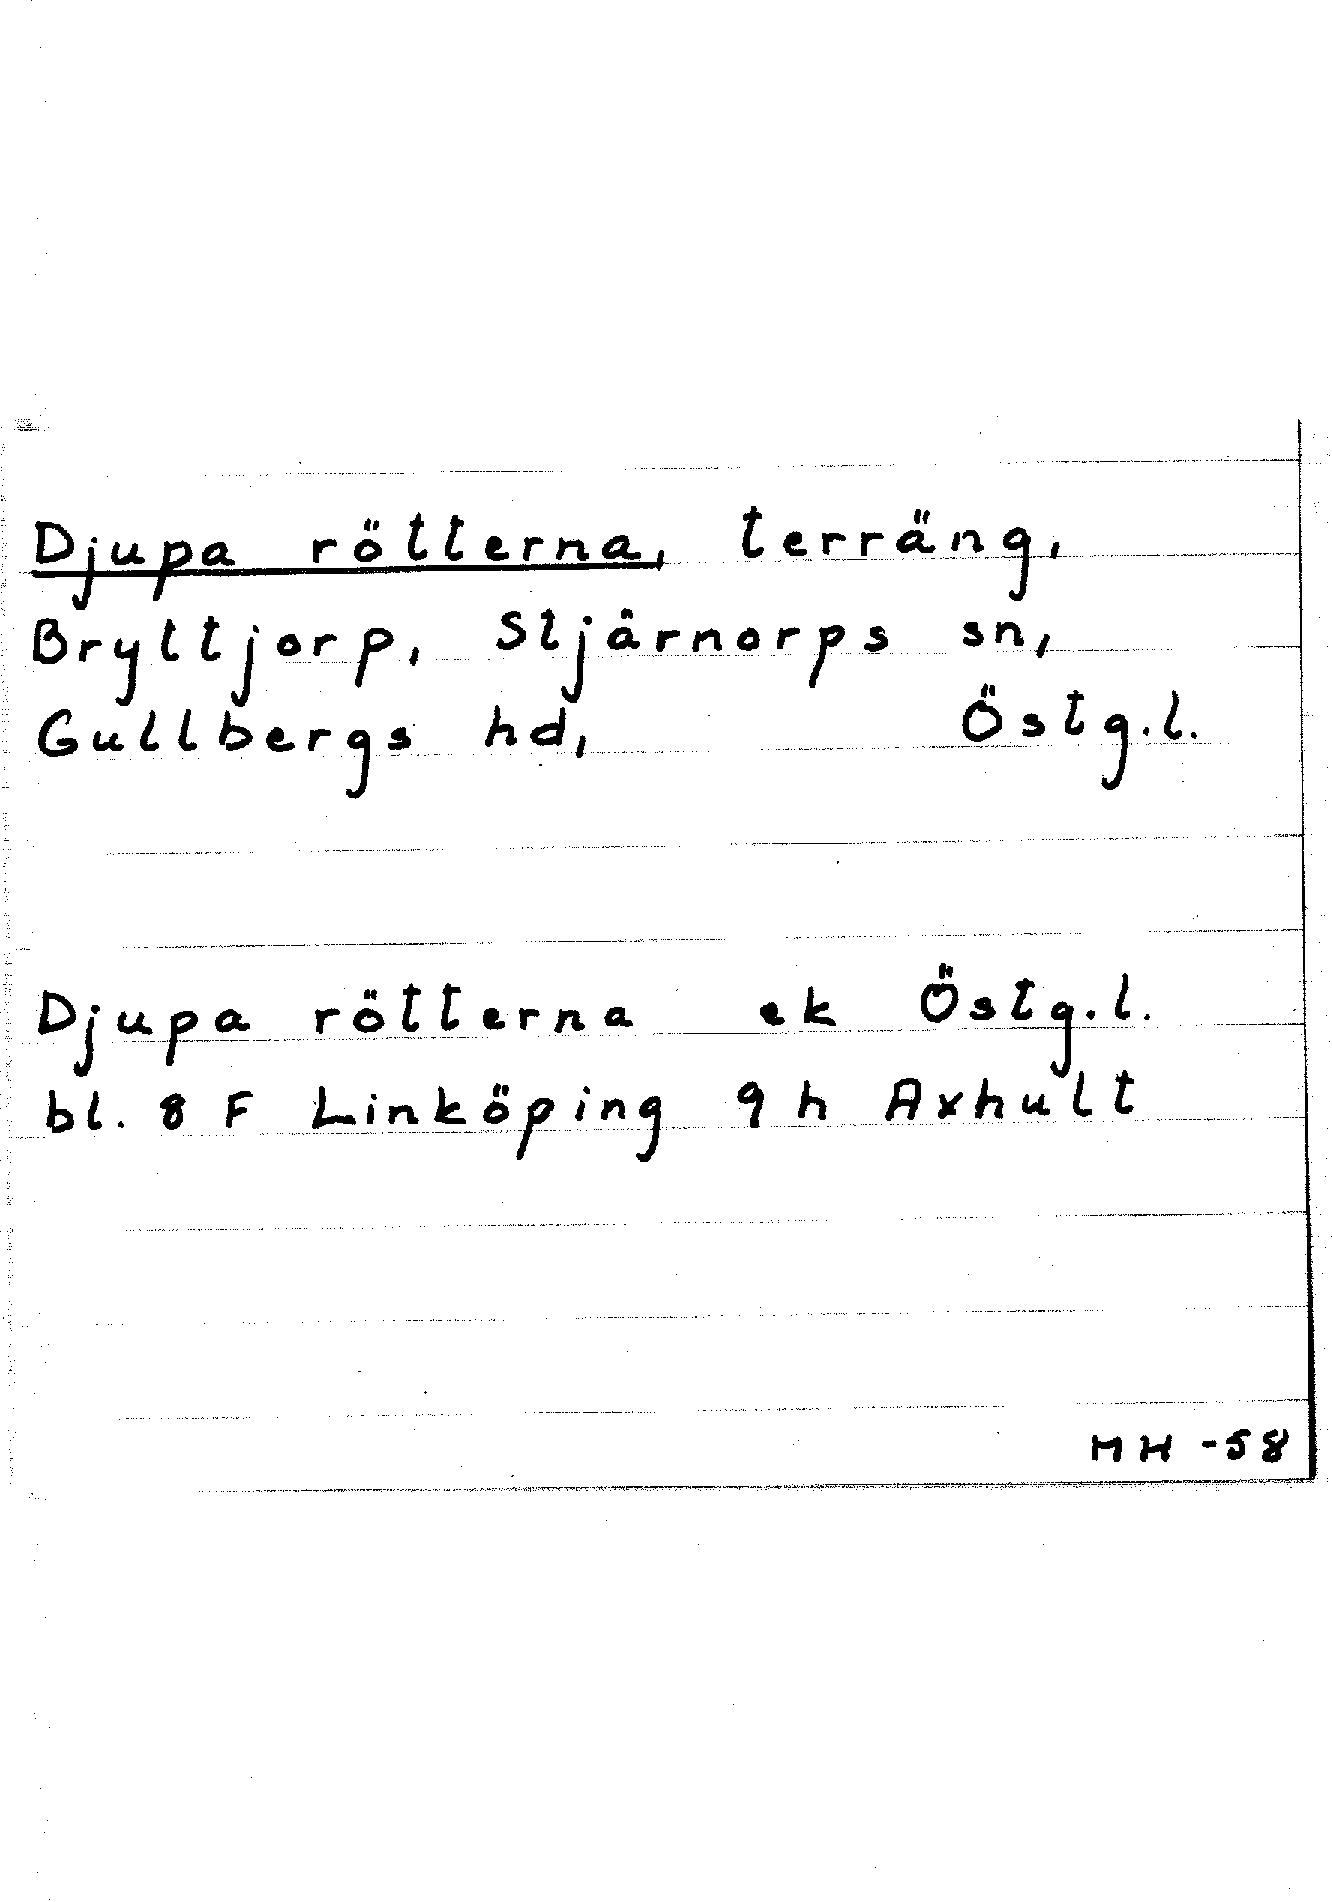 Djupa rötterna, terräng,
Bryttjorp, Stjärnorps sn,
Gullbergs hd, Östg.l.
Djupa rötterna ek Östg.l.
bl. 8 F Linköping 9 h Axhult
MH -58